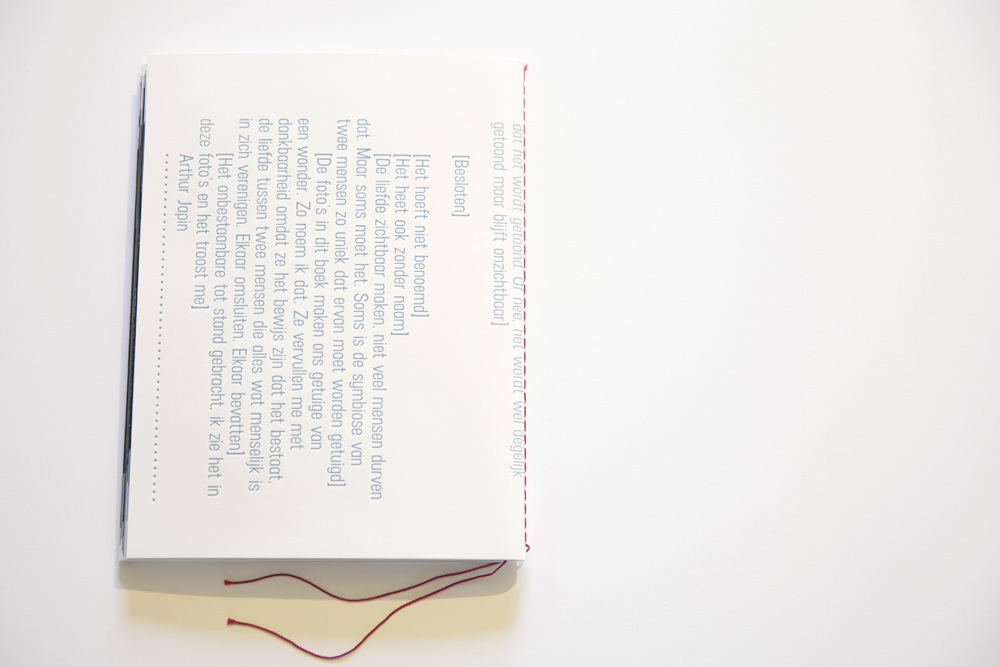 dat het wordt getoond. Of nee, het wordt wel degelijk
getoond maar blijft onzichtbaar]
[Besloten]
[Het hoeft niet benoemd]
[Het heet ook zonder naam]
[De liefde zichtbaar maken, niet veel mensen durven
dat. Maar soms moet het. Soms is de symbiose van
twee mensen zo uniek dat ervan moet worden getuigd]
[De foto's in dit boek maken ons getuige van
een wonder. Zo noem ik dat. Ze vervullen me met
dankbaarheid omdat ze het bewijs zijn dat het bestaat,
de liefde tussen twee mensen die alles wat menselijk is
in zich verenigen. Elkaar omsluiten. Elkaar bevatten]
[Het onbestaanbare tot stand gebracht, ik zie het in
deze foto's en het troost me]
Arthur Japin